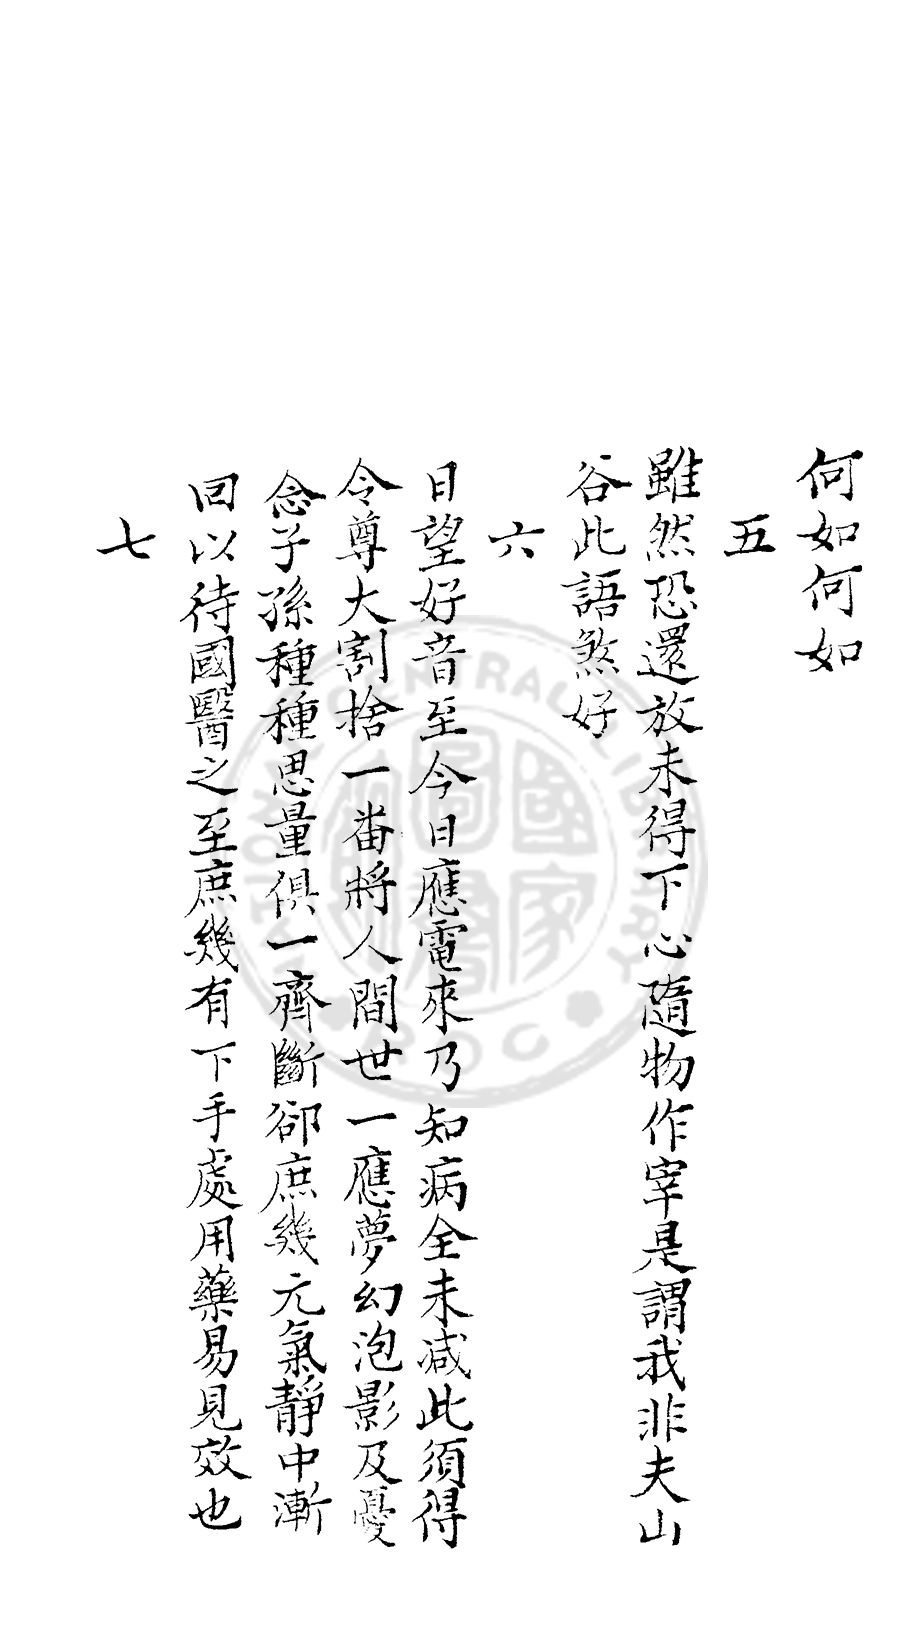 何如何如
五
雖然恐還放未得下心隨物作宰是謂我非夫山
谷此語煞好
六
日望好音至今日應電來乃知病全未減此須得
令尊大割捨一番將人間世一應夢幻泡影及憂
念子孫種種思量俱一齊斷卻庶幾元氣靜中漸
回以待國醫之至庶幾有下手處用藥易見效也
七
NATIONAL CENTRAL LIBRARY
ROC
國家圖書館